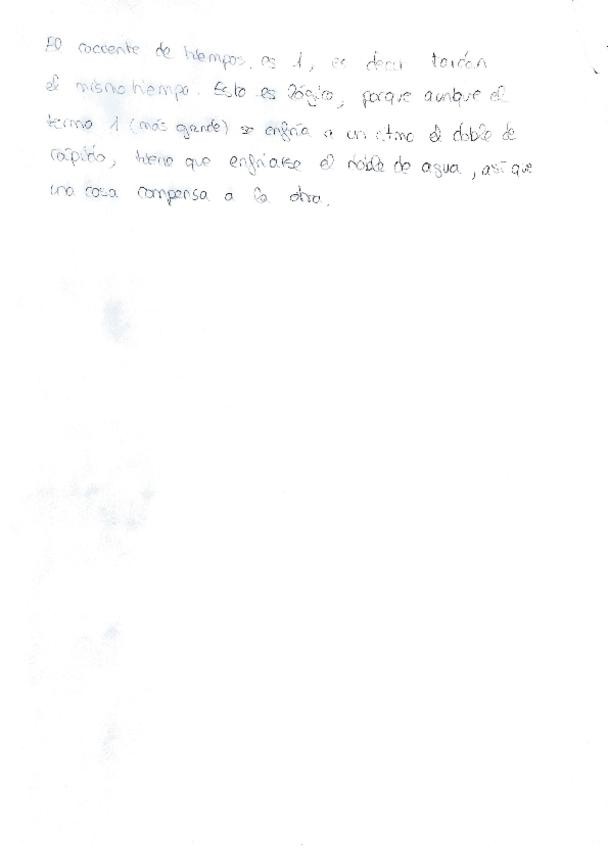 El cociente de tiempos es 1, es decir tardan
el mismo tiempo. Esto es lógico, porque aunque el
termo 1 (más grande) se enfría a un ritmo el doble de
rápido, tiene que enfriarse el doble de agua, así que
una cosa compensa a la otra.